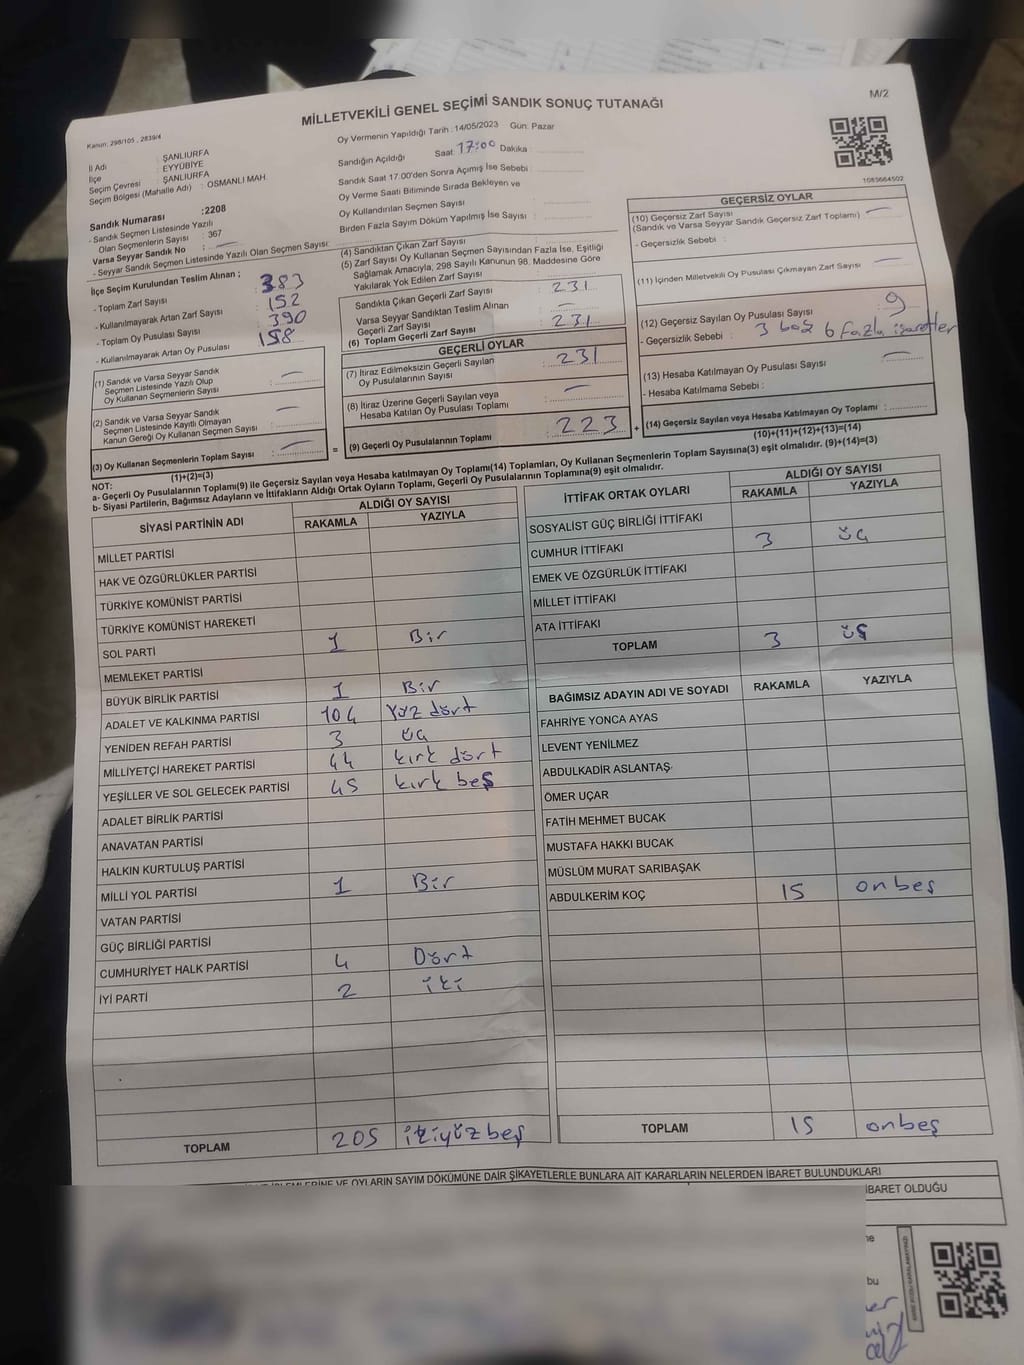 MİLLETVEKİLİ GENEL SEÇİMİ SANDIK SONUÇ TUTANAĞI
M/2
Kanun: 298/105 , 2839/4
İl Adı : ŞANLIURFA
İlçe : EYYÜBİYE
Seçim Çevresi : ŞANLIURFA
Seçim Bölgesi (Mahalle Adı) : OSMANLI MAH.
Sandık Numarası :2208
- Sandık Seçmen Listesinde Yazılı
Olan Seçmenlerin Sayısı : 367
Varsa Seyyar Sandık No : —
- Seyyar Sandık Seçmen Listesinde Yazılı Olan Seçmen Sayısı:
Oy Vermenin Yapıldığı Tarih : 14/05/2023 Gün: Pazar
Sandığın Açıldığı Saat 17:00 Dakika
Sandık Saat 17.00'den Sonra Açımış İse Sebebi :
Oy Verme Saati Bitiminde Sırada Bekleyen ve
Oy Kullandırılan Seçmen Sayısı :
Birden Fazla Sayım Döküm Yapılmış İse Sayısı :
1083664502
İlçe Seçim Kurulundan Teslim Alınan ;
- Toplam Zarf Sayısı : 383
- Kullanılmayarak Artan Zarf Sayısı : 152
- Toplam Oy Pusulası Sayısı : 390
- Kullanılmayarak Artan Oy Pusulası : 158
(1) Sandık ve Varsa Seyyar Sandık
Seçmen Listesinde Yazılı Olup
Oy Kullanan Seçmenlerin Sayısı : —
(2) Sandık ve Varsa Seyyar Sandık
Seçmen Listesinde Kayıtlı Olmayan
Kanun Gereği Oy Kullanan Seçmen Sayısı : —
(3) Oy Kullanan Seçmenlerin Toplam Sayısı : —
(1)+(2)=(3)
(4) Sandıktan Çıkan Zarf Sayısı :
(5) Zarf Sayısı Oy Kullanan Seçmen Sayısından Fazla İse, Eşitliği
Sağlamak Amacıyla, 298 Sayılı Kanunun 98. Maddesine Göre
Yakılarak Yok Edilen Zarf Sayısı :
Sandıkta Çıkan Geçerli Zarf Sayısı : 231
Varsa Seyyar Sandıktan Teslim Alınan
Geçerli Zarf Sayısı : —
(6) Toplam Geçerli Zarf Sayısı : 231
GEÇERLİ OYLAR
(7) İtiraz Edilmeksizin Geçerli Sayılan
Oy Pusulalarının Sayısı : 231
(8) İtiraz Üzerine Geçerli Sayılan veya
Hesaba Katılan Oy Pusulası Toplamı : —
= (9) Geçerli Oy Pusulalarının Toplamı : 223 +
GEÇERSİZ OYLAR
(10) Geçersiz Zarf Sayısı
(Sandık ve Varsa Seyyar Sandık Geçersiz Zarf Toplamı) : —
- Geçersizlik Sebebi :
(11) İçinden Milletvekili Oy Pusulası Çıkmayan Zarf Sayısı : —
(12) Geçersiz Sayılan Oy Pusulası Sayısı : 9
- Geçersizlik Sebebi : 3 boş 6 fazla işaretler
(13) Hesaba Katılmayan Oy Pusulası Sayısı : —
- Hesaba Katılmama Sebebi :
(14) Geçersiz Sayılan veya Hesaba Katılmayan Oy Toplamı :
(10)+(11)+(12)+(13)=(14)
NOT:
a- Geçerli Oy Pusulalarının Toplamı(9) ile Geçersiz Sayılan veya Hesaba katılmayan Oy Toplamı(14) Toplamları, Oy Kullanan Seçmenlerin Toplam Sayısına(3) eşit olmalıdır. (9)+(14)=(3)
b- Siyasi Partilerin, Bağımsız Adayların ve İttifakların Aldığı Ortak Oyların Toplamı, Geçerli Oy Pusulalarının Toplamına(9) eşit olmalıdır.
SİYASİ PARTİNİN ADI ALDIĞI OY SAYISI
RAKAMLA YAZIYLA
MİLLET PARTİSİ
HAK VE ÖZGÜRLÜKLER PARTİSİ
TÜRKİYE KOMÜNİST PARTİSİ
TÜRKİYE KOMÜNİST HAREKETİ
SOL PARTİ 1 Bir
MEMLEKET PARTİSİ
BÜYÜK BİRLİK PARTİSİ 1 Bir
ADALET VE KALKINMA PARTİSİ 104 Yüz dört
YENİDEN REFAH PARTİSİ 3 üç
MİLLİYETÇİ HAREKET PARTİSİ 44 kırk dört
YEŞİLLER VE SOL GELECEK PARTİSİ 45 kırk beş
ADALET BİRLİK PARTİSİ
ANAVATAN PARTİSİ
HALKIN KURTULUŞ PARTİSİ
MİLLİ YOL PARTİSİ 1 Bir
VATAN PARTİSİ
GÜÇ BİRLİĞİ PARTİSİ
CUMHURİYET HALK PARTİSİ 4 Dört
İYİ PARTİ 2 iki
TOPLAM 205 ikiyüz beş
İTTİFAK ORTAK OYLARI ALDIĞI OY SAYISI
RAKAMLA YAZIYLA
SOSYALİST GÜÇ BİRLİĞİ İTTİFAKI
CUMHUR İTTİFAKI 3 üç
EMEK VE ÖZGÜRLÜK İTTİFAKI
MİLLET İTTİFAKI
ATA İTTİFAKI
TOPLAM 3 üç
BAĞIMSIZ ADAYIN ADI VE SOYADI RAKAMLA YAZIYLA
FAHRİYE YONCA AYAS
LEVENT YENİLMEZ
ABDULKADİR ASLANTAŞ
ÖMER UÇAR
FATİH MEHMET BUCAK
MUSTAFA HAKKI BUCAK
MÜSLÜM MURAT SARIBAŞAK
ABDULKERİM KOÇ 15 onbeş
TOPLAM 15 onbeş
VE OYLARIN SAYIM DÖKÜMÜNE DAİR ŞİKAYETLERLE BUNLARA AİT KARARLARIN NELERDEN İBARET BULUNDUKLARI
İBARET OLDUĞU
bu